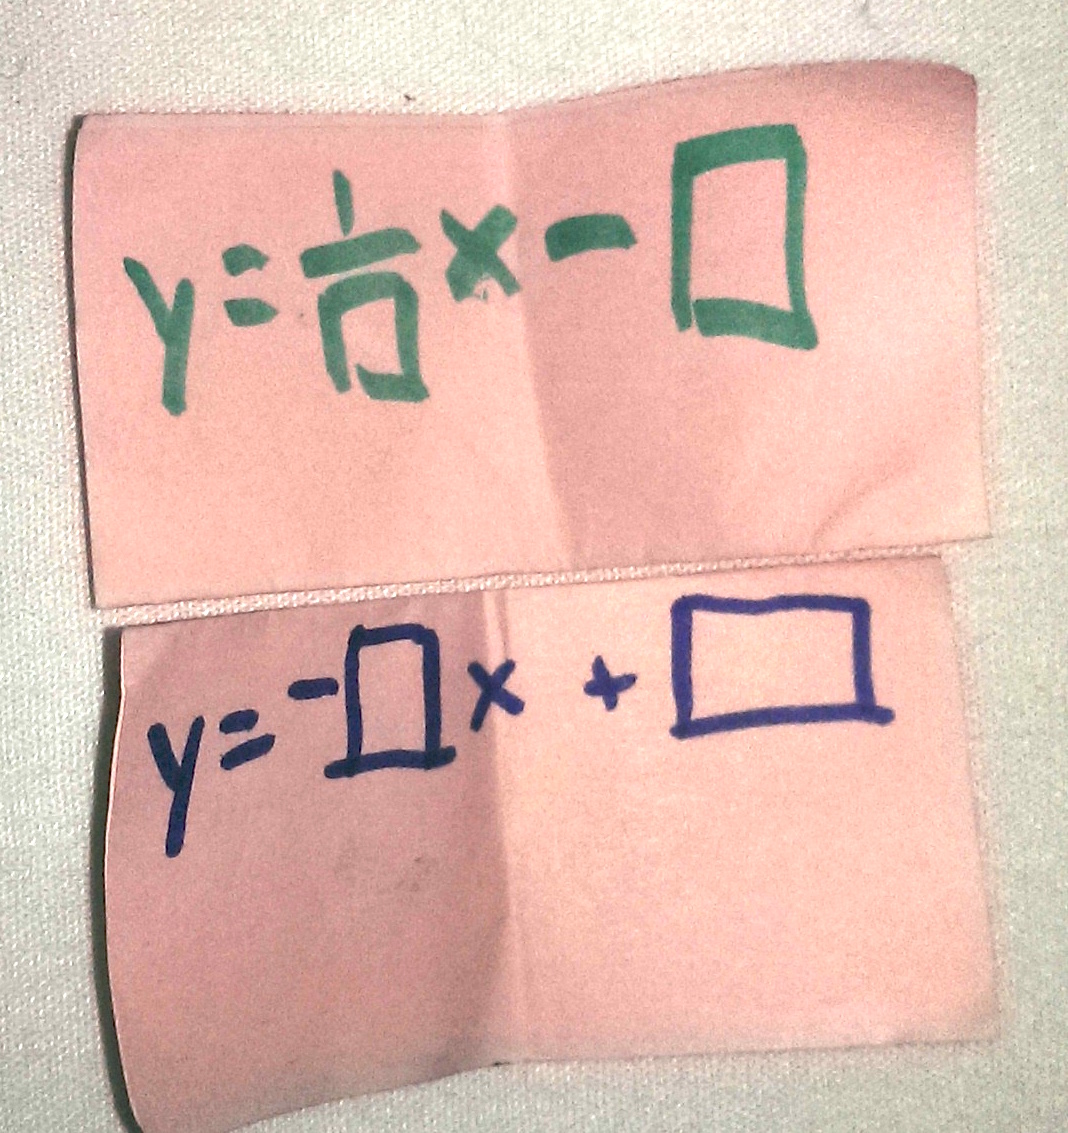 y = 1/□ x - □
y = -□ x + □